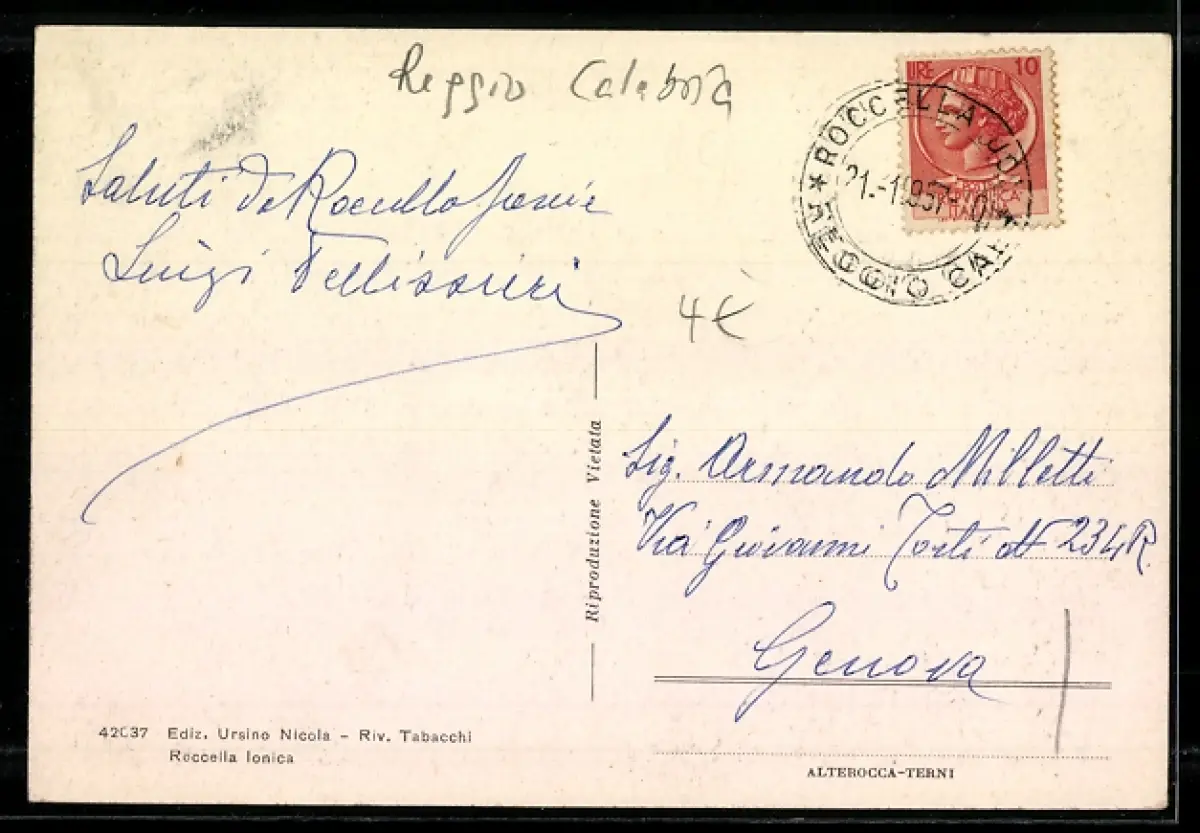 Reggio Calabria
LIRE 10
ROCCELLA
21.-1.1957
REGGIO CAL
Saluti da Roccella Jonica
Luigi Pellissieri
4€
Riproduzione Vietata
Sig. Armando Milletti
Via Giovanni Torti N 234R.
Genova
42037 Ediz. Ursino Nicola - Riv. Tabacchi
Roccella Ionica
ALTEROCCA-TERNI